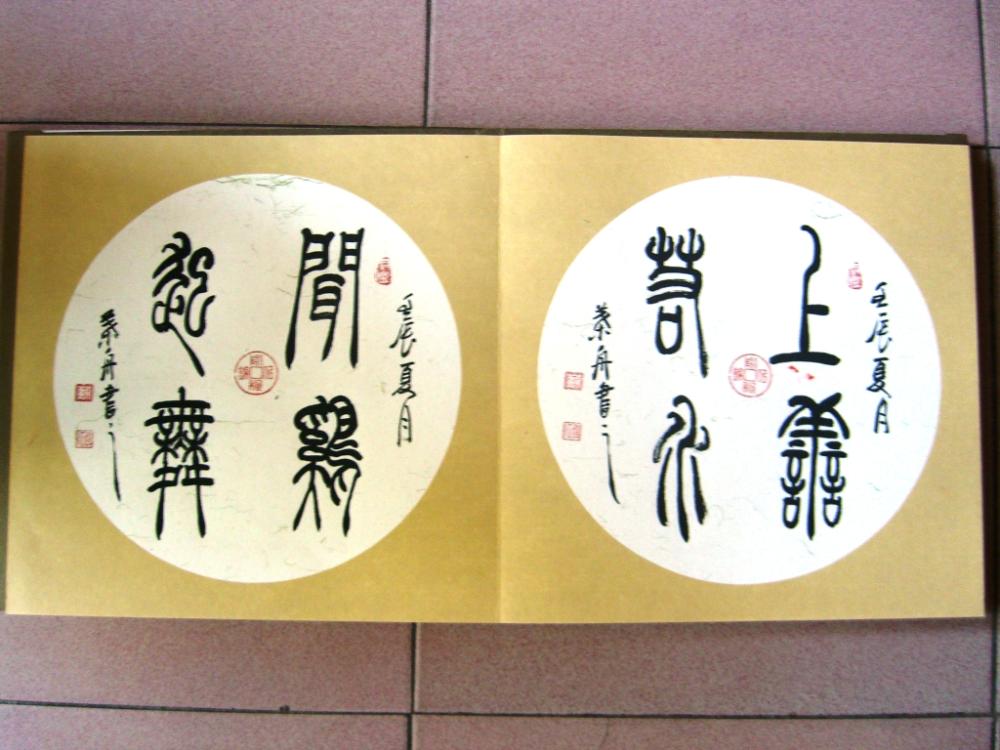 壬辰夏月
上善
若水
舟書之
壬辰夏月
聞鷄
起舞
舟書之